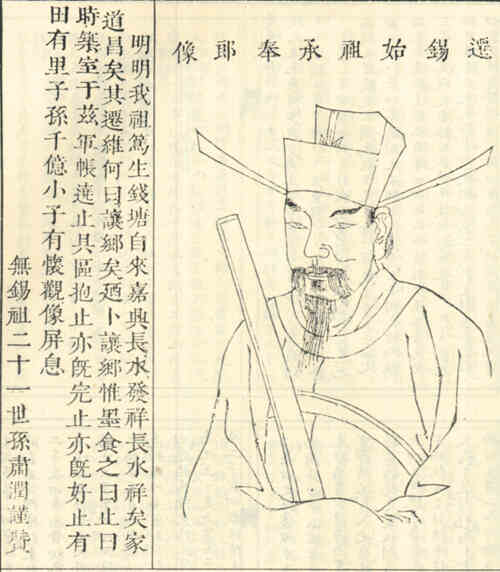 遷錫始祖承奉郎像
明明我祖篤生錢塘自來嘉興長水發祥長水祥矣家
道昌矣其遷維何曰讓鄉矣廼卜讓鄉惟墨食之曰止曰
時築室于茲軍帳遶止具區抱止亦既完止亦既好止有
田有里子孫千億小子有懷觀像屏息
無錫祖二十一世孫肅潤謹贊